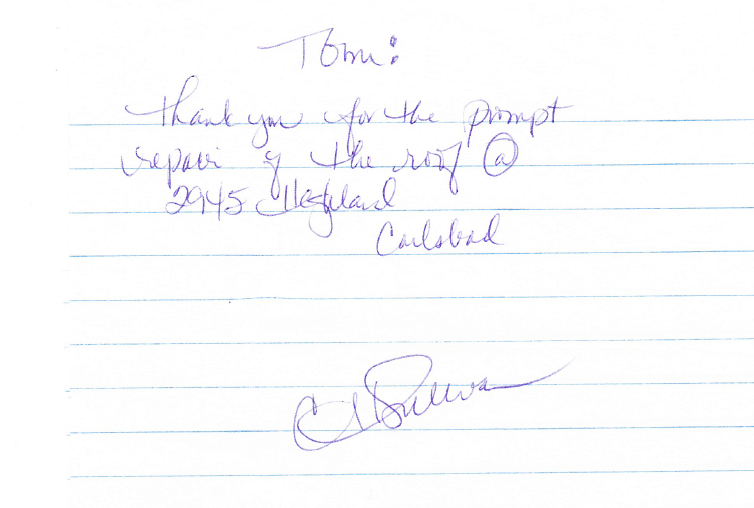 Tom:
Thank you for the prompt
repair of the roof @
2945 Highland
Carlsbad
Sullivan